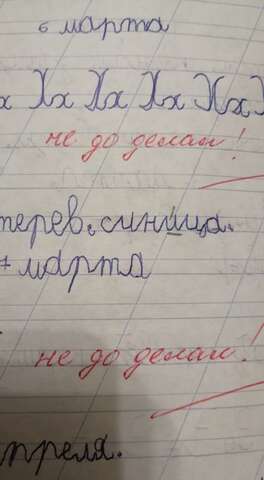 6 марта
х Хх Хх Хх Хх Х
не до делал!
терев. синица.
7 марта
не до делал!
преля.